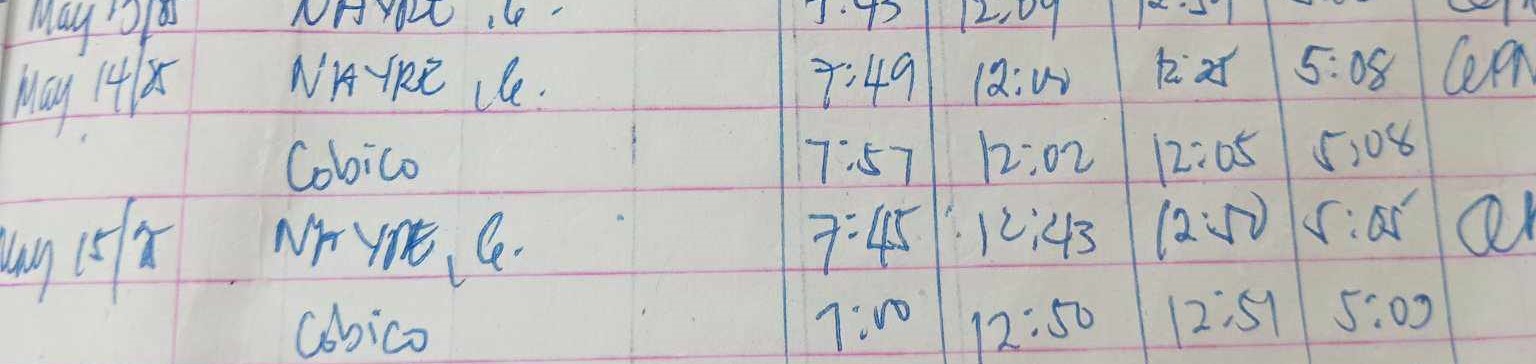 May 13/25 NAYRE, G. 7:43 12:09
May 14/25 NAYRE, G. 7:49 12:00 12:25 5:08
Cobico 7:57 12:02 12:05 5:08
May 15/25 NAYRE, G. 7:45 12:43 12:50 5:05
Cobico 7:00 12:50 12:51 5:09